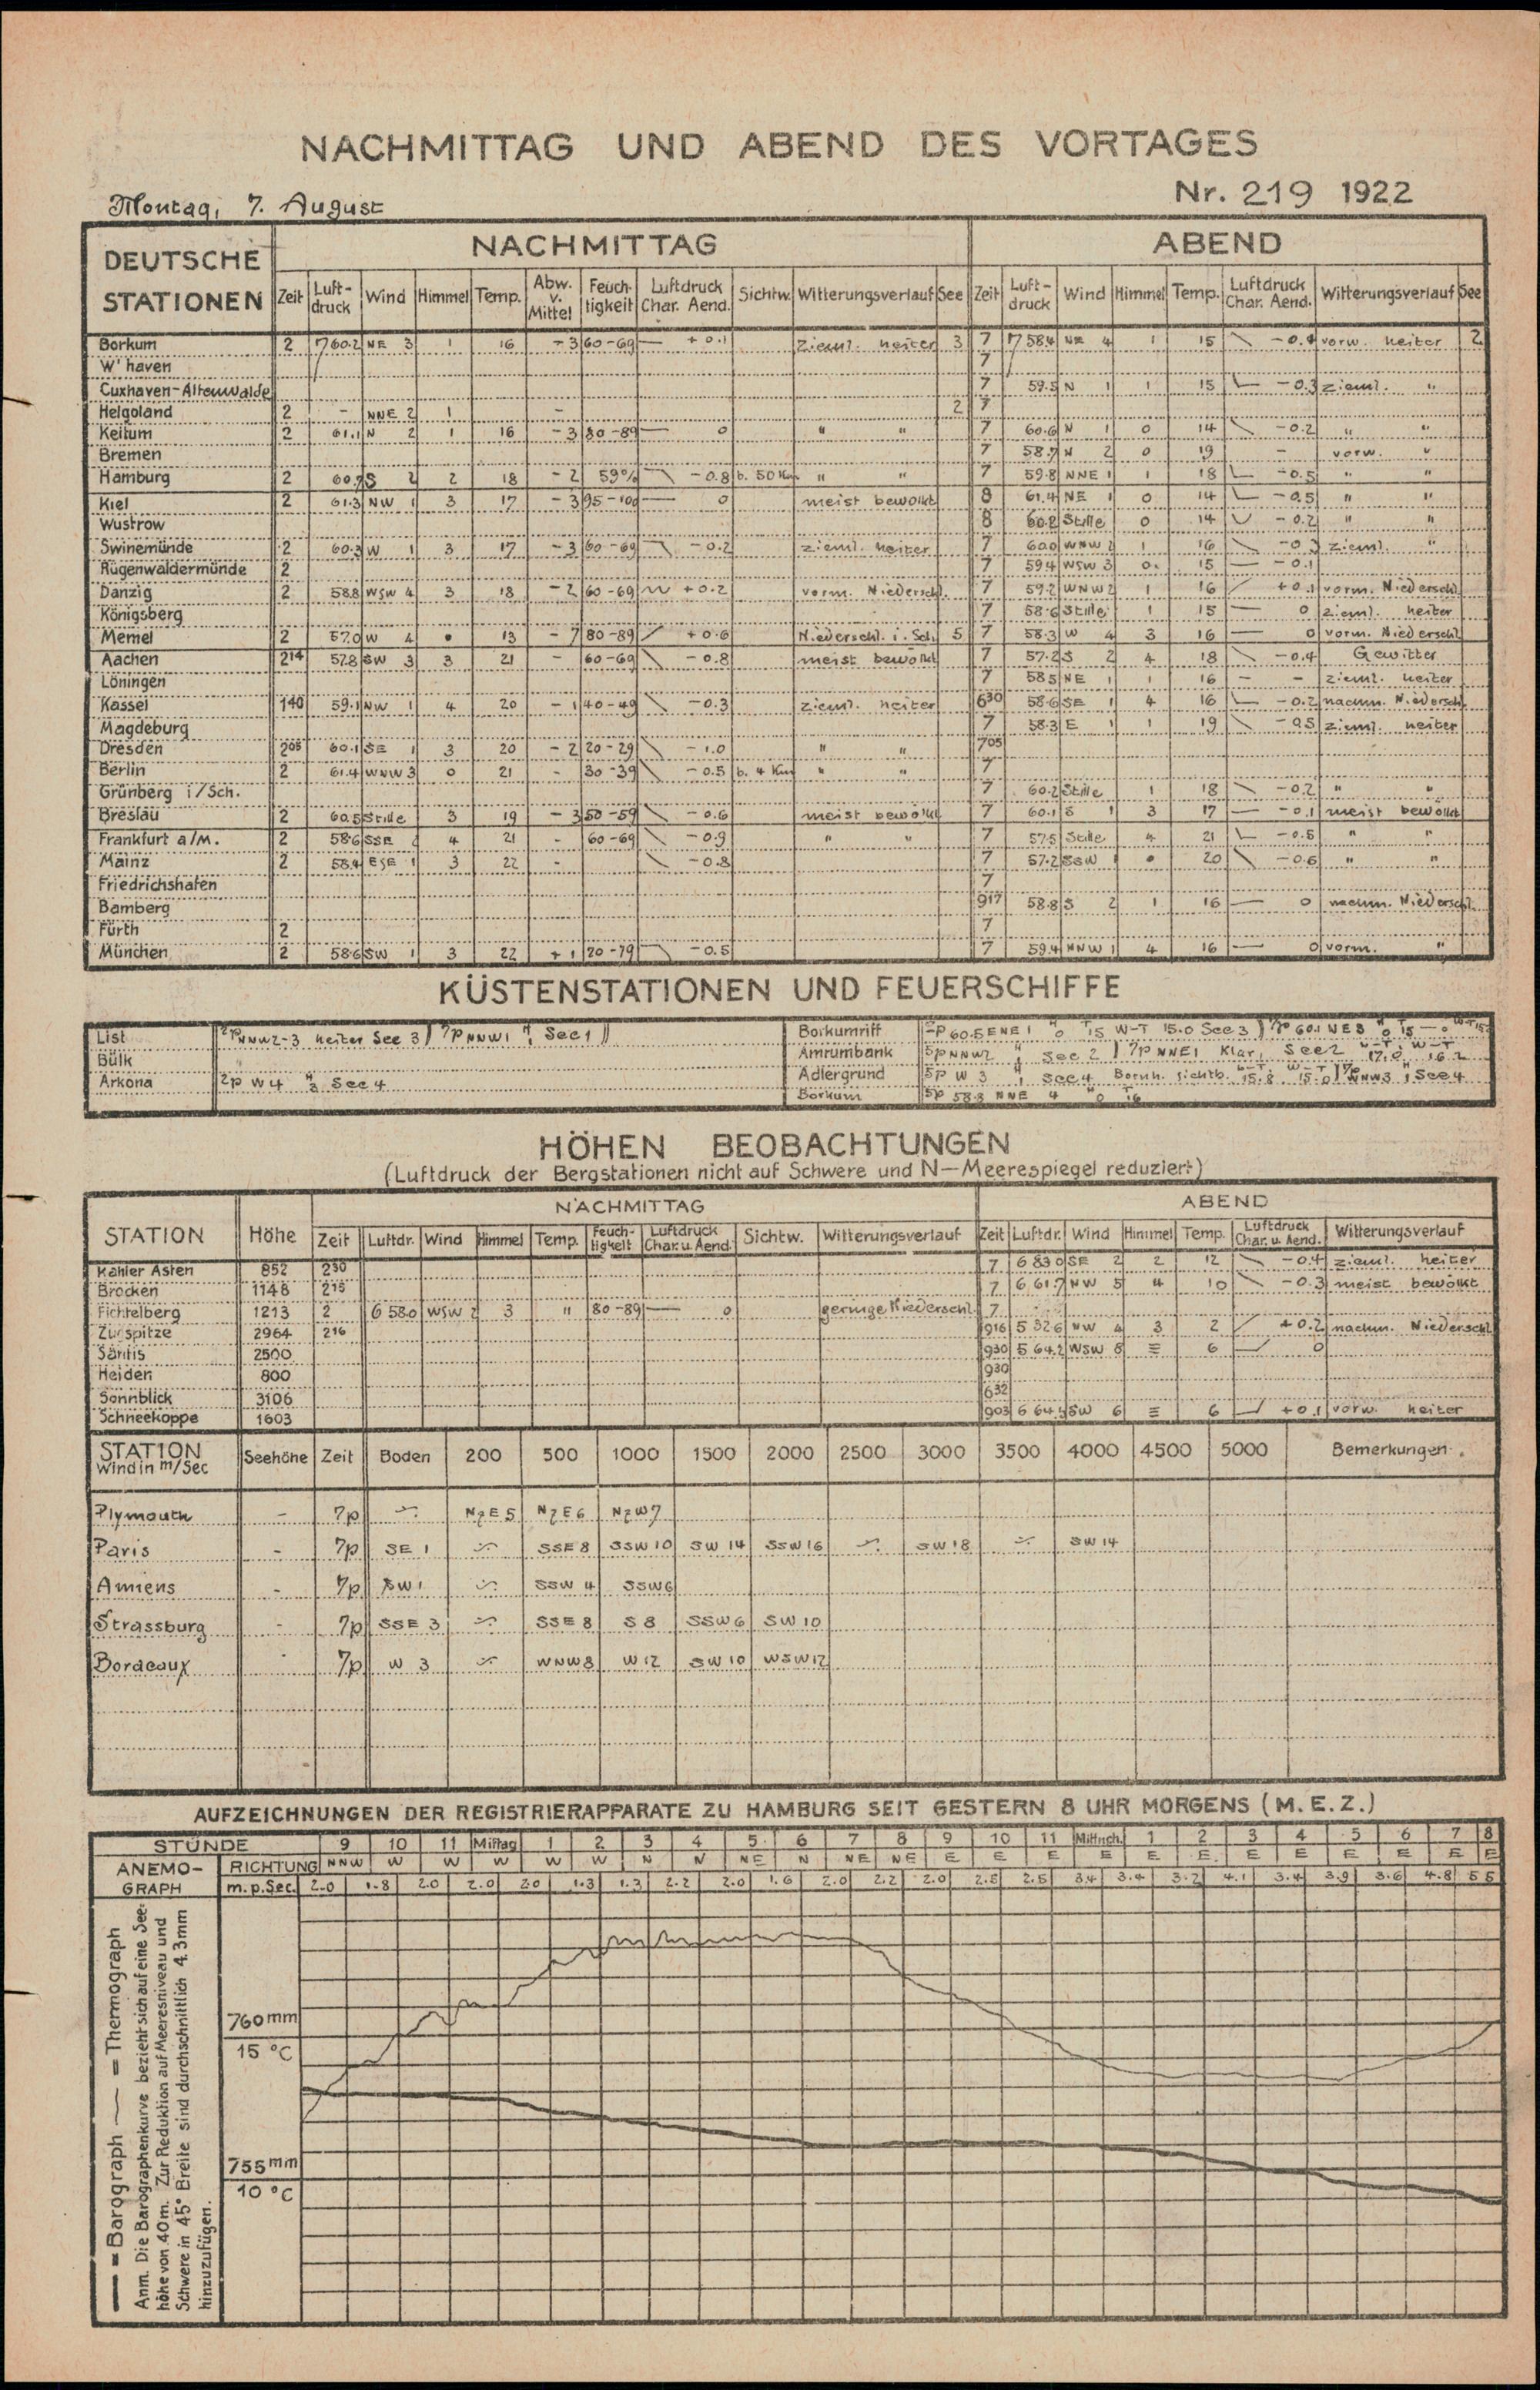 NACHMITTAG UND ABEND DES VORTAGES
Montag, 7. August
Nr. 219 1922
DEUTSCHE STATIONEN NACHMITTAG ABEND
Zeit Luft-druck Wind Himmel Temp. Abw. v. Mittel Feuch-tigkeit Luftdruck Char. Aend. Sichtw. Witterungsverlauf See Zeit Luft-druck Wind Himmel Temp. Luftdruck Char. Aend. Witterungsverlauf See
Borkum 2 760.2 NE 3 1 16 -3 60-69 — +0.1 zieml. heiter 3 7 758.4 NE 4 1 15 \ -0.4 vorw. heiter 2
W'haven 7
Cuxhaven-Altenwalde 7 59.5 N 1 1 15 -0.3 zieml. "
Helgoland 2 - NNE 2 1 - 2 7
Keitum 2 61.1 N 2 1 16 -3 80-89 — 0 " " 7 60.6 N 1 0 14 \ -0.2 " "
Bremen 7 58.7 N 2 0 19 - vorw. "
Hamburg 2 60.7 S 2 2 18 -2 59% -0.8 b. 50 Km " " 7 59.8 NNE 1 1 18 -0.5 " "
Kiel 2 61.3 NW 1 3 17 -3 95-100 — 0 meist bewölkt 8 61.4 NE 1 0 14 -0.5 " "
Wustrow 8 60.2 Stille 0 14 -0.2 " "
Swinemünde 2 60.3 W 1 3 17 -3 60-69 -0.2 zieml. heiter 7 60.0 WNW 2 1 16 \ -0.3 zieml. "
Rügenwaldermünde 2 7 59.4 WSW 3 0 15 — -0.1
Danzig 2 58.8 WSW 4 3 18 -2 60-69 +0.2 vorm. Niederschl. 7 59.2 WNW 2 1 16 / +0.1 vorm. Niederschl.
Königsberg 7 58.6 Stille 1 15 — 0 zieml. heiter
Memel 2 57.0 W 4 • 13 -7 80-89 / +0.6 Niederschl. i. Sch. 5 7 58.3 W 4 3 16 — 0 vorm. Niederschl.
Aachen 214 57.8 SW 3 3 21 - 60-69 \ -0.8 meist bewölkt 7 57.2 S 2 4 18 \ -0.4 Gewitter
Löningen 7 58.5 NE 1 1 16 - - zieml. heiter
Kassel 140 59.1 NW 1 4 20 -1 40-49 \ -0.3 zieml. heiter 630 58.6 SE 1 4 16 -0.2 nachm. Niederschl.
Magdeburg 7 58.3 E 1 1 19 \ -0.5 zieml. heiter
Dresden 205 60.1 SE 1 3 20 -2 20-29 \ -1.0 " " 705
Berlin 2 61.4 WNW 3 0 21 - 30-39 \ -0.5 b. 4 Km " " 7
Grünberg i/Sch. 7 60.2 Stille 1 18 \ -0.2 " "
Breslau 2 60.5 Stille 3 19 -3 50-59 \ -0.6 meist bewölkt 7 60.1 S 1 3 17 — -0.1 meist bewölkt
Frankfurt a/M. 2 58.6 SSE 4 21 - 60-69 \ -0.9 " " 7 57.5 Stille 4 21 -0.5 " "
Mainz 2 58.4 ESE 1 3 22 - \ -0.8 7 57.2 SSW 1 • 20 \ -0.6 " "
Friedrichshafen 7
Bamberg 917 58.8 S 2 1 16 — 0 nachm. Niederschl.
Fürth 2 7
München 2 58.6 SW 1 3 22 +1 70-79 -0.5 7 59.4 NNW 1 4 16 — 0 vorm. "
KÜSTENSTATIONEN UND FEUERSCHIFFE
List 2p NNW2-3 heiter See 3) 7p NNW1 H 1 See 1)) Borkumriff 2p 60.5 ENE 1 H 0 T 15 W-T 15.0 See 3) 7p 60.1 NE 3 H 0 T 15
Bülk Amrumbank 5p NNW2 H 1 See 2) 7p NNE1 Klar, See 2 W-T 17.0 W-T 16.2
Arkona 2p W 4 H 3 See 4 Adlergrund 5p W 3 H 1 See 4 Bornh. sichtb. W-T 15.8 W-T 15.0) 7p WNW3 H 1 See 4
Borkum 5p 58.3 NNE 4 H 0 T 16
HÖHEN BEOBACHTUNGEN
(Luftdruck der Bergstationen nicht auf Schwere und N—Meerespiegel reduziert)
STATION Höhe NACHMITTAG ABEND
Zeit Luftdr. Wind Himmel Temp. Feuch-tigkeit Luftdruck Char. u. Aend. Sichtw. Witterungsverlauf Zeit Luftdr. Wind Himmel Temp. Luftdruck Char. u. Aend. Witterungsverlauf
Kahler Asten 852 230 7 683.0 SE 2 2 12 \ -0.4 zieml. heiter
Brocken 1148 215 7 661.7 NW 5 4 10 \ -0.3 meist bewölkt
Fichtelberg 1213 2 658.0 WSW 2 3 11 80-89 — 0 geringe Niederschl. 7
Zugspitze 2964 216 916 532.6 NW 4 3 2 +0.2 nachm. Niederschl.
Säntis 2500 930 564.2 WSW 5 ≡ 6 0
Heiden 800 930
Sonnblick 3106 632
Schneekoppe 1603 903 664.5 SW 6 ≡ 6 +0.1 vorw. heiter
STATION Wind in m/Sec Seehöhe Zeit Boden 200 500 1000 1500 2000 2500 3000 3500 4000 4500 5000 Bemerkungen.
Plymouth - 7p NzE 5 NzE 6 NzW 7
Paris - 7p SE 1 SSE 8 SSW 10 SW 14 SSW 16 SW 18 SW 14
Amiens - 7p SW 1 SSW 4 SSW 6
Strassburg - 7p SSE 3 SSE 8 S 8 SSW 6 SW 10
Bordeaux - 7p W 3 WNW 8 W 12 SW 10 WSW 12
AUFZEICHNUNGEN DER REGISTRIERAPPARATE ZU HAMBURG SEIT GESTERN 8 UHR MORGENS (M.E.Z.)
STUNDE 9 10 11 Mittag 1 2 3 4 5 6 7 8 9 10 11 Mittnch. 1 2 3 4 5 6 7 8
ANEMO-GRAPH RICHTUNG NNW W W W W W N N NE N NE NE E E E E E E E E E E E E
m.p.Sec. 2.0 1.8 2.0 2.0 2.0 1.3 1.3 2.2 2.0 1.6 2.0 2.2 2.0 2.5 2.5 3.4 3.4 3.2 4.1 3.4 3.9 3.6 4.8 5.5
760 mm
15 °C
755 mm
10 °C
— = Barograph — = Thermograph
Anm. Die Barographenkurve bezieht sich auf eine See-
höhe von 40 m. Zur Reduktion auf Meeresniveau und
Schwere in 45° Breite sind durchschnittlich 4.3 mm
hinzuzufügen.